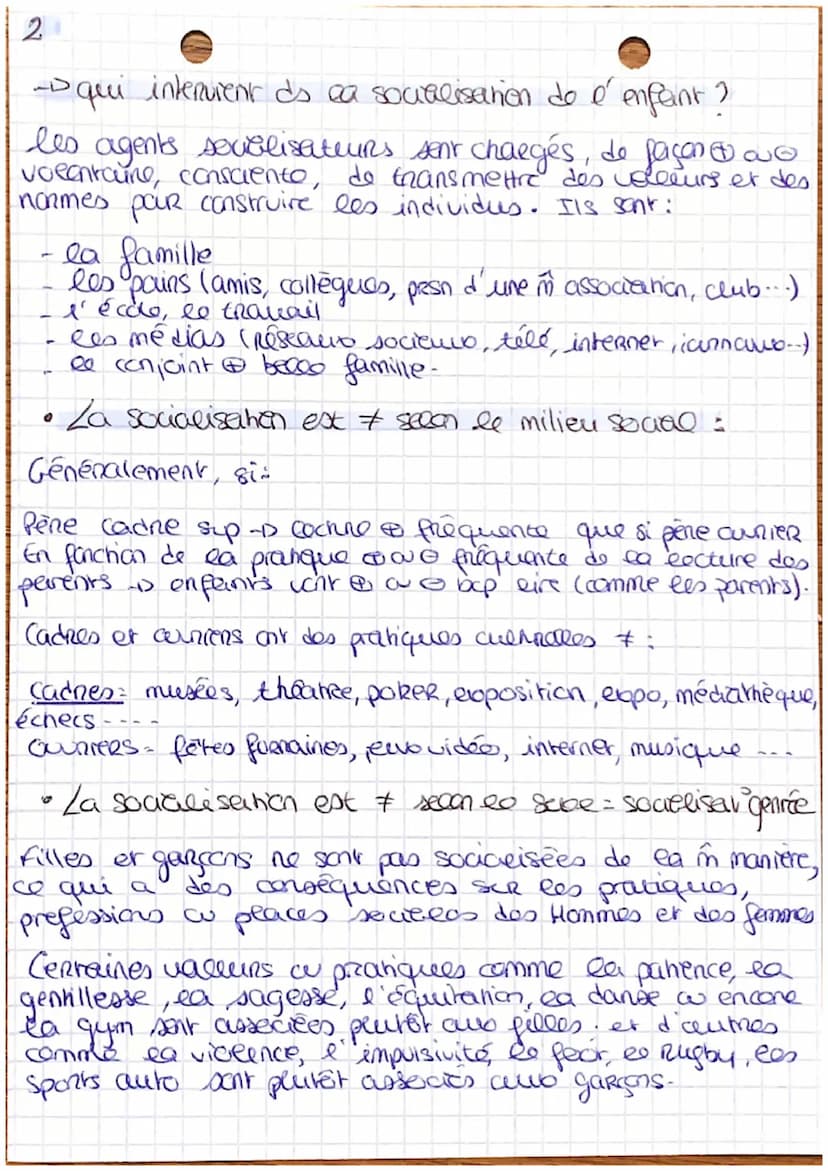 2
→ qui intervient ds la socialisation de l'enfant ?
Les agents socialisateurs sont chargés, de façon ⊕ ou ⊖
volontaire, consciente, de transmettre des valeurs et des
normes pour construire les individus. Ils sont :
- la famille
- les pairs (amis, collègues, prsn d'une m̂ association, club...)
- l'école, le travail
- les médias (réseaux sociaux, télé, internet, journaux...)
- le conjoint ⊕ belle famille.
• La socialisation est ≠ selon le milieu social :
Généralement, si :
Père cadre sup → lecture ⊕ fréquente que si père ouvrier
En fonction de la pratique ⊕ ou ⊖ fréquente de la lecture des
parents → enfants vont ⊕ ou ⊖ bcp lire (comme les parents).
Cadres et ouvriers ont des pratiques culturelles ≠ :
Cadres : musées, théâtre, poker, exposition, expo, médiathèque,
échecs ----
Ouvriers = fêtes foraines, jeux vidéo, internet, musique ---
• La socialisation est ≠ selon le sexe = socialisat° genrée
Filles et garçons ne sont pas socialisées de la m̂ manière,
ce qui a des conséquences sur les pratiques,
professions ou places sociales des Hommes et des femmes
Certaines valeurs ou pratiques comme la patience, la
gentillesse, la sagesse, l'équitation, la danse ou encore
la gym sont associées plutôt aux filles. et d'autres
comme la violence, l'impulsivité, le foot, le Rugby, les
sports auto sont plutôt associés aux garçons.